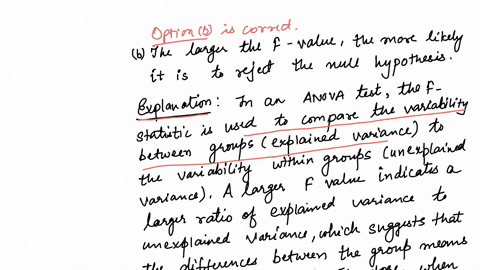 Option (b) is correct.
(b) The larger the F-value, the more likely
it is to reject the null hypothesis.
Explanation: In an ANOVA test, the F-
statistic is used to compare the variability
between groups (explained variance) to
the variability within groups (unexplained
variance). A larger F value indicates a
larger ratio of explained variance to
unexplained variance, which suggests that
the differences between the group means
when